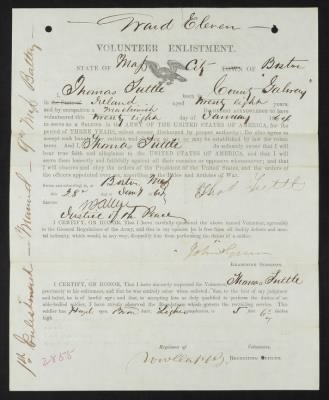 Ward Eleven
VOLUNTEER ENLISTMENT.
STATE OF Mass City TOWN OF Boston
I, Thomas Tuttle born in County "Galway"
in the State of Ireland aged twenty eight years
and by occupation a Machinist Do HEREBY ACKNOWLEDGE to have
volunteered this twenty eighth day of January 1864
to serve as a Soldier in the ARMY OF THE UNITED STATES OF AMERICA, for the
period of THREE YEARS, unless sooner discharged by proper authority: Do also agree to
accept such bounty, pay, rations, and clothing, as are, or may be, established by law for volun-
teers. And I, Thomas Tuttle do solemnly swear that I will
bear true faith and allegiance to the UNITED STATES OF AMERICA, and that I will
serve them honestly and faithfully against all their enemies or opposers whomsoever; and that
I will observe and obey the orders of the President of the United States, and the orders of
the officers appointed over me, according to the Rules and Articles of War.
Sworn and subscribed to, at Boston, Mass
this 28th day of Jan'y 1864
BEFORE
Justice of the Peace
I CERTIFY, ON HONOR, That I have carefully examined the above named Volunteer, agreeably
to the General Regulations of the Army, and that in my opinion he is free from all bodily defects and men-
tal infirmity, which would, in any way, disqualify him from performing the duties of a soldier.
EXAMINING SURGEON.
I CERTIFY, ON HONOR, That I have minutely inspected the Volunteer, Thomas Tuttle
previously to his enlistment, and that he was entirely sober when enlisted; that, to the best of my judgment
and belief, he is of lawful age; and that, in accepting him as duly qualified to perform the duties of an
able-bodied soldier, I have strictly observed the Regulations which govern the recruiting service. This
soldier has Hazel eyes, Brown hair, Light complexion, is 5 feet 6 inches
high.
Regiment of
Volunteers,
RECRUITING OFFICER.
2855